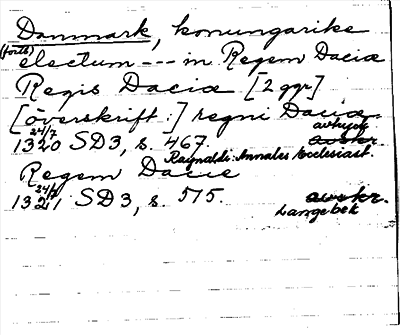 Danmark, konungarike
(forts) electum --- in Regem Daciæ
Regis Daciæ [2 ggr]
[överskrift:] regni Daciæ
1320 24/7 SD3, s. 467. avtryck avskr.
Raynaldi: Annales Ecclesiast.
Regem Dacie
1321 24/ SD3, s. 515. avskr.
Langebek